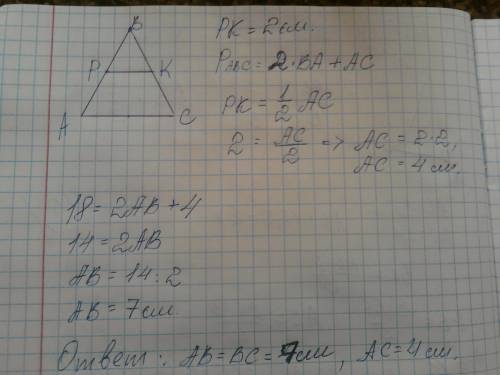 B
P K
A C
PK = 2 см.
P ABC = 2·BA + AC
PK = 1/2 AC
2 = AC/2 => AC = 2·2,
AC = 4 см.
18 = 2AB + 4
14 = 2AB
AB = 14 : 2
AB = 7 см.
Ответ: AB = BC = 7 см, AC = 4 см.